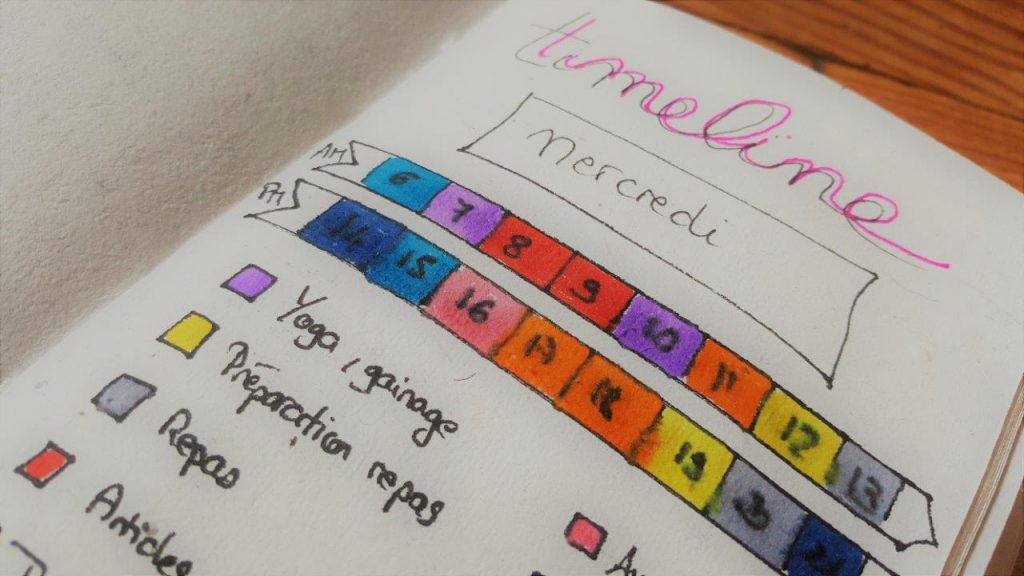 timeline
mercredi
AM 6 7 8 9 10 11 12 13
PM 14 15 16 17 18 19 20 21
Yoga, gainage
Préparation repas
Repas
Articles